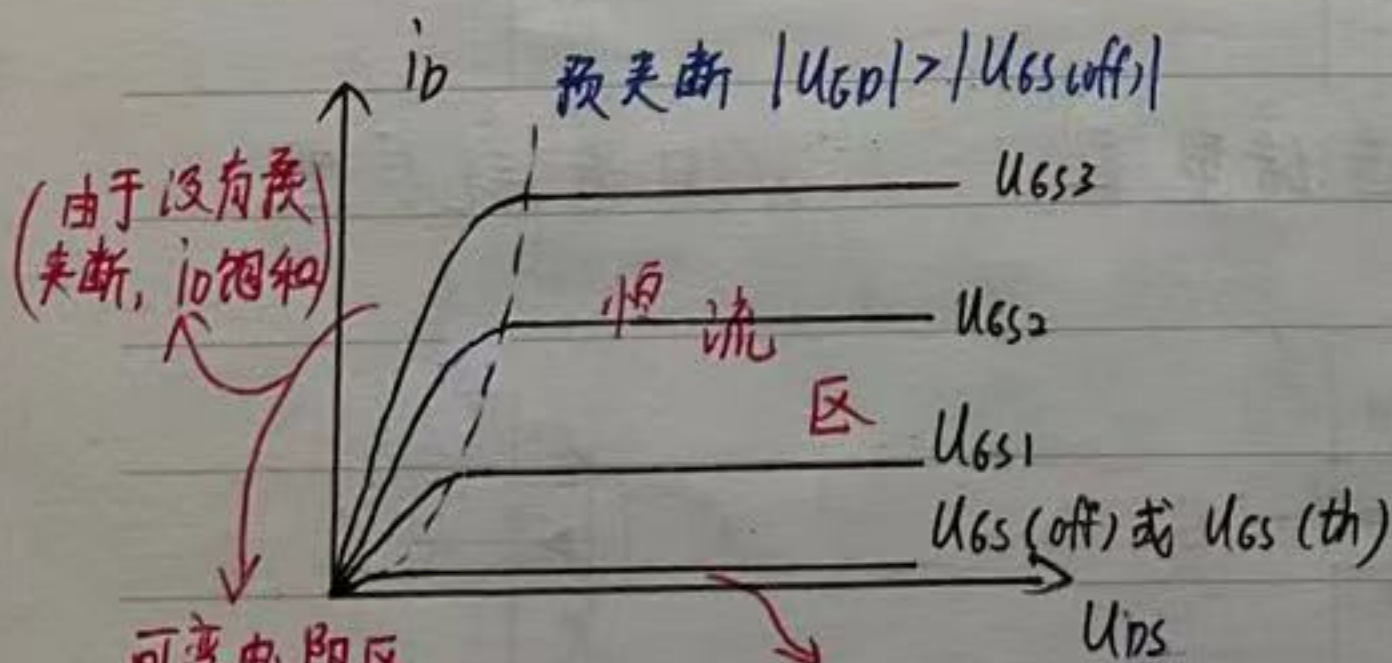 iD
预夹断 |UGD|>|UGS(off)|
(由于没有预
夹断, iD饱和)
UGS3
恒流区
UGS2
UGS1
UGS(off)或 UGS(th)
UDS
可变电阻区